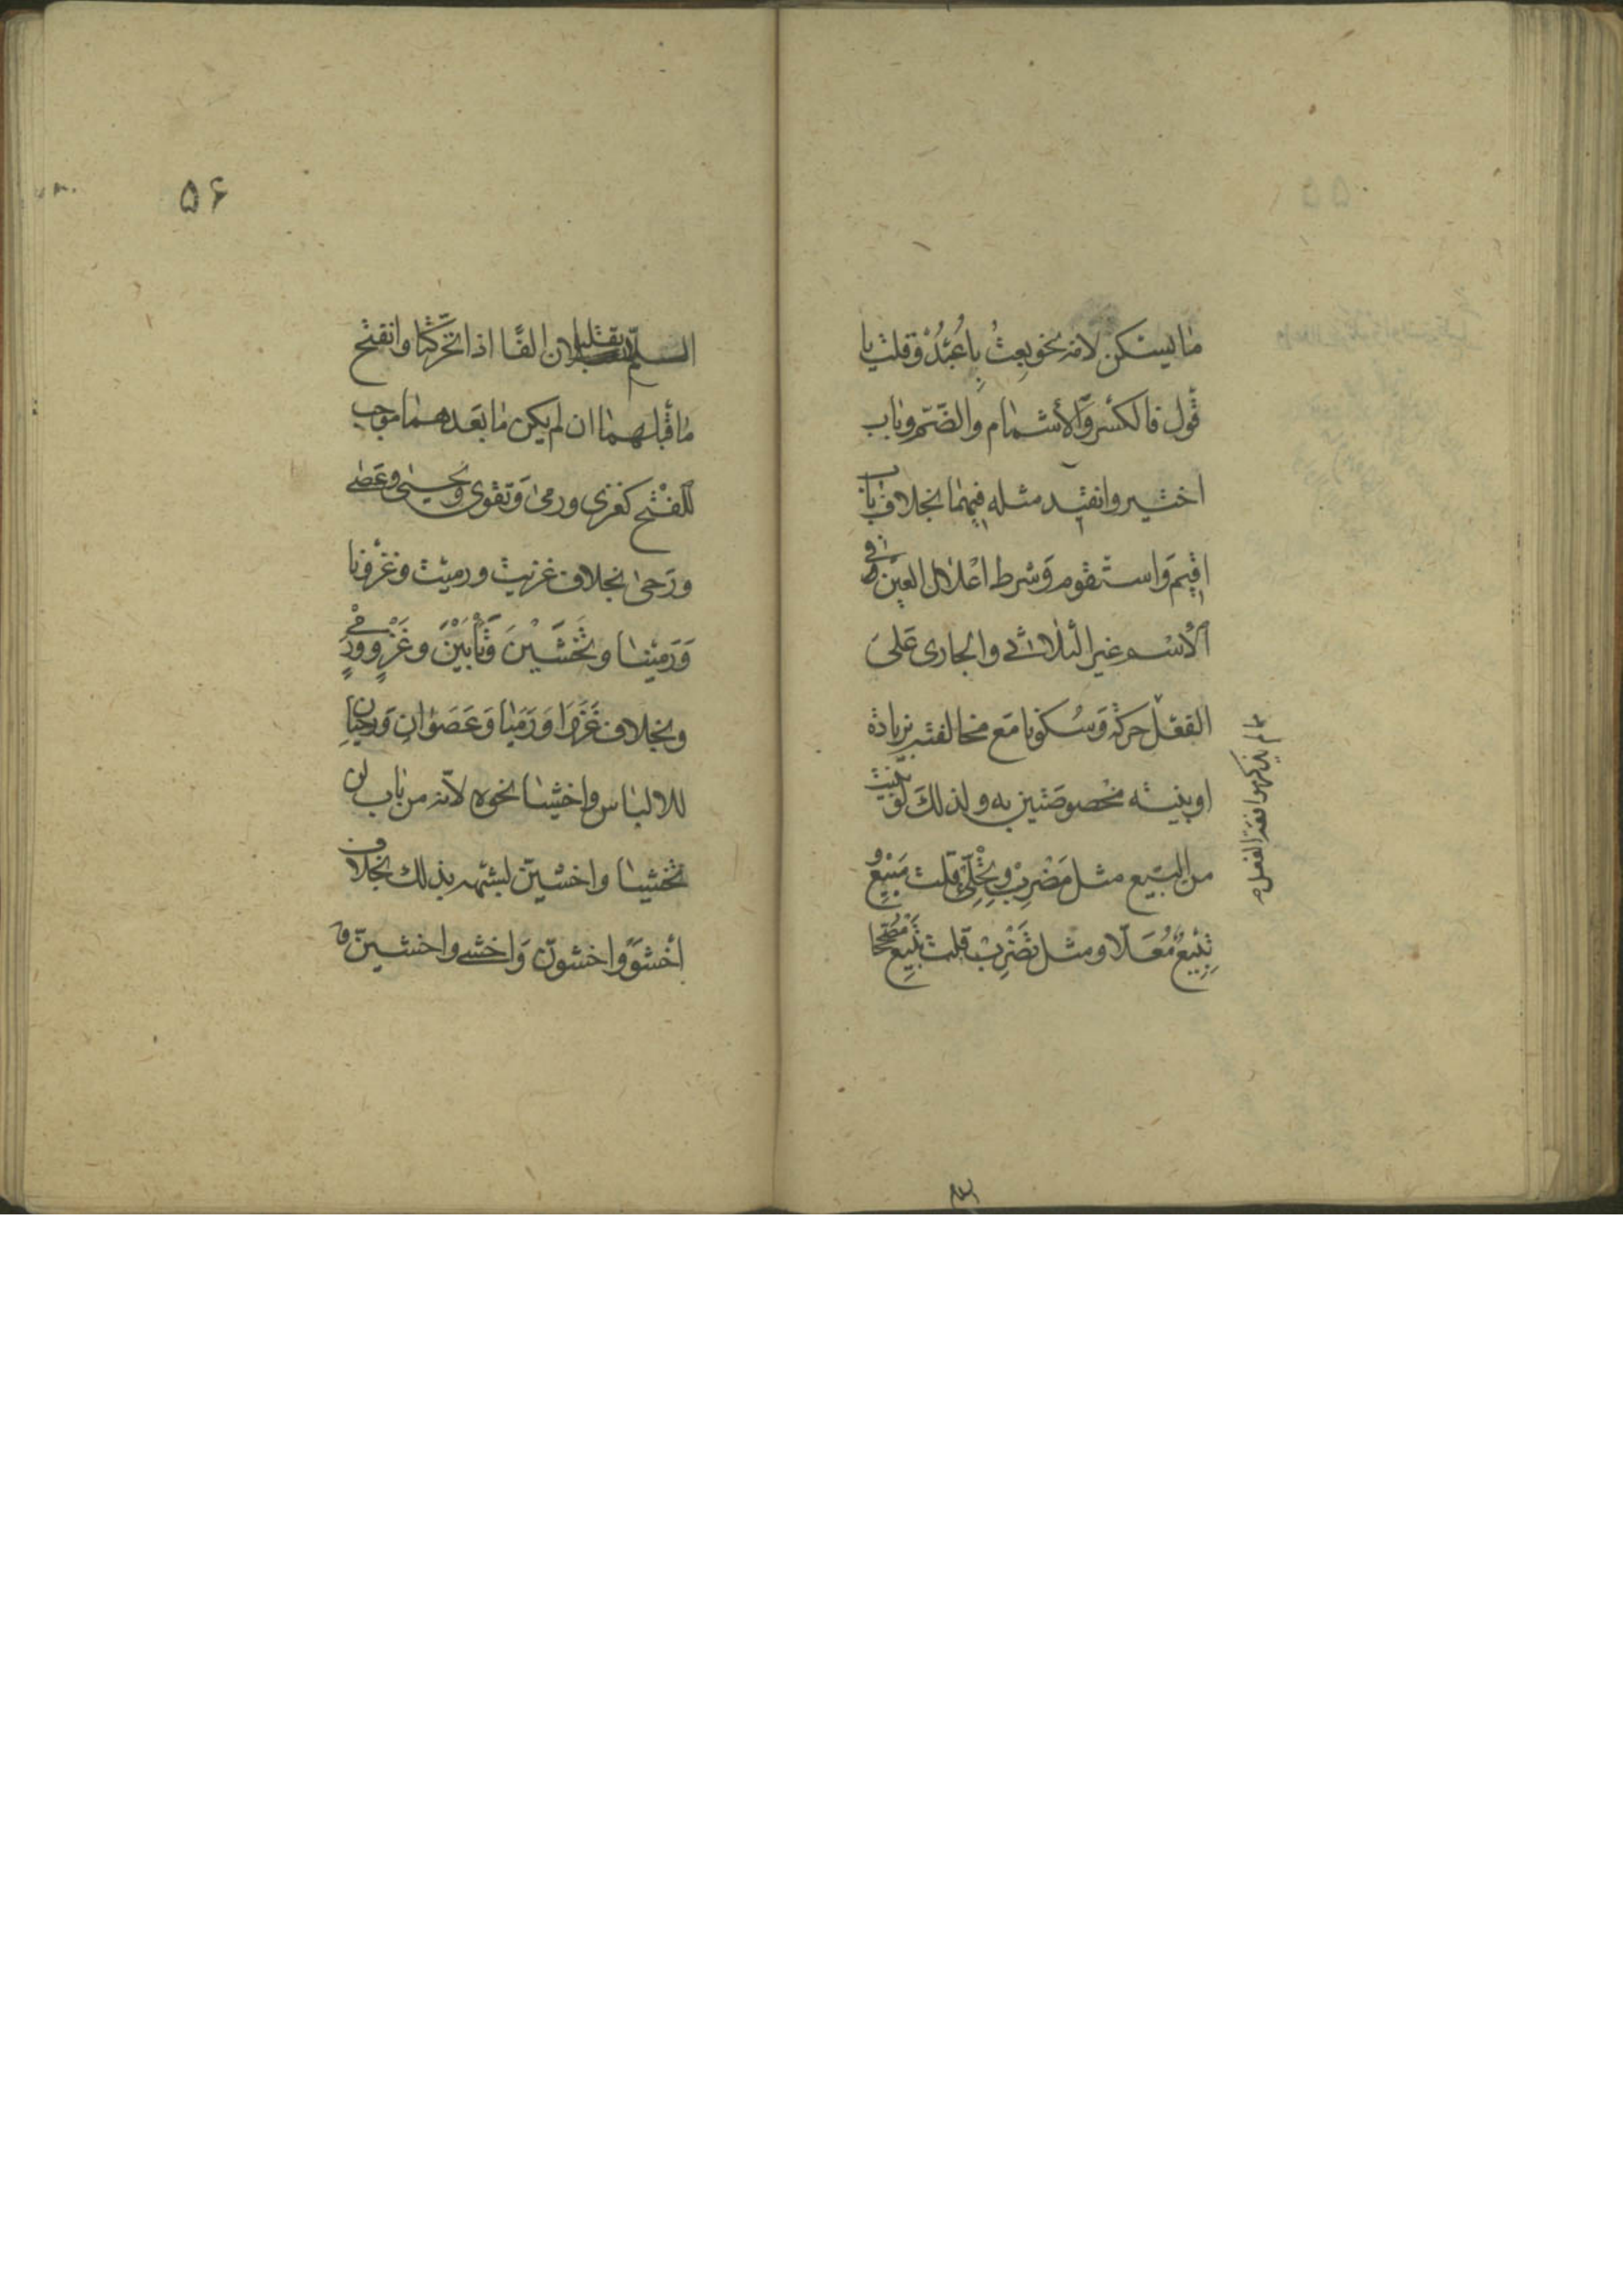 ما يسكن لامه نحو بعتُ يا عُبَيْدُ وقلت يا
قُول فالكسر والأشمام والضّم وباب
اختير وانقيد مثله فيهما بخلاف باب
اقيم واستقوم وشرط اعلال العين في
الاسم غير الثلاثى والجارى على
الفعل حركة وسكونا مع مخالفته بزيادة
او بنيته مخصوصتين به ولذلك لو بنيت
من البيع مثل مَضْرِب وتِحْلِئ قلت مَبِيْعٌ و
تِبِيْعٌ مُعَلّا ومثل تَضْرِب قلت تَبْيِع مصححا
۵۶
اللام تقلبان الفًا اذا تحرّكتا وانفتح
ما قبلهما ان لم يكن ما بعدهما موجب
للفتح كغزى ورمى وتقوى ويحيى وعصى
ورحى بخلاف غزيت ورميت وغزونا
ورمينا وتخشين وتأبين وغزو ورمى
وبخلاف غزوا ورميا وعصوان ورحيان
للالباس واخشيا نحوه لأنه من باب لن
تخشيا واخشينّ لشبهه بذلك بخلاف
اخشوا واخشونّ واخشى واخشينّ و